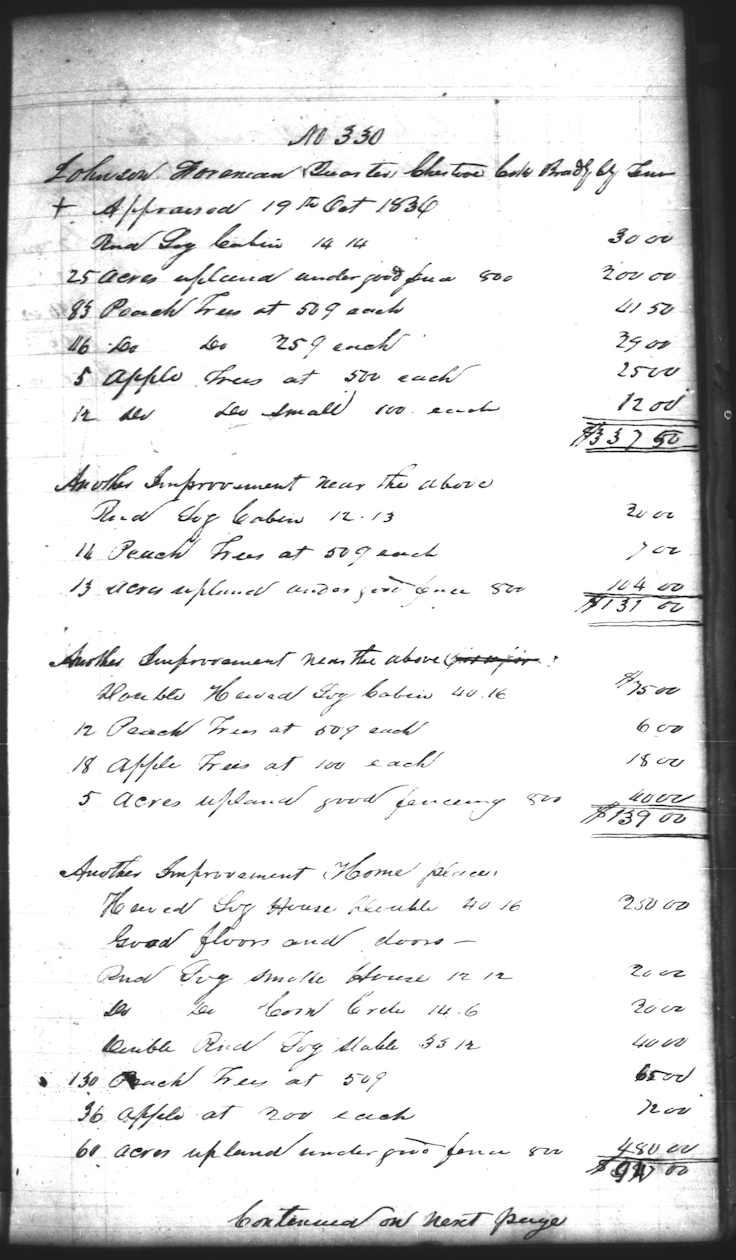 No 330
Johnson Foreman (Quarter) Chestooe Creek Bradly Cty Tenn
+ Appraised 19th Oct 1836
Rnd Log Cabin 14 14 30 00
25 Acres upland under good fence 800 200 00
83 Peach Trees at 50¢ each 41 50
116 Do Do 25¢ each 29 00
5 Apple Trees at 500 each 25 00
12 Do Do Small 100 each 12 00
$337 50
Another Improvement near the above
Rnd Log Cabin 12.13 20 00
14 Peach Trees at 50¢ each 7 00
13 acres upland under good fence 800 104 00
$131 00
Another Improvement near the above
Double Hewed Log Cabin 40.16 $75 00
12 Peach Trees at 50¢ each 6 00
18 Apple Trees at 100 each 18 00
5 Acres upland good fencing 800 40 00
$139 00
Another Improvement (Home place)
Hewed Log House Double 40 16 250 00
Good floors and doors —
Rnd Log Smoke House 12 12 20 00
Do Do Corn Crib 14.6 20 00
Double Rnd Log Stable 33 12 40 00
130 Peach Trees at 50¢ 65 00
36 Apple at 200 each 72 00
60 acres upland under good fence 800 480 00
$947 00
Continued on next page